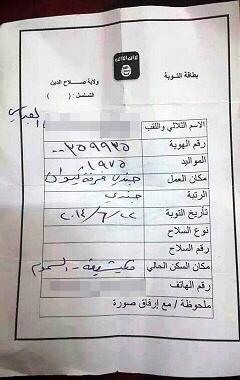 بطاقة التوبة
ولاية صلاح الدين
التسلسل : ( )
الاسم الثلاثي واللقب
رقم الهوية
المواليد ١٩٧٥
مكان العمل جندي فرقة
الرتبة جندي
تاريخ التوبة ٢٠١٤/٦/٢٢
نوع السلاح
رقم السلاح
مكان السكن الحالي
رقم الهاتف
ملحوظة / مع إرفاق صورة